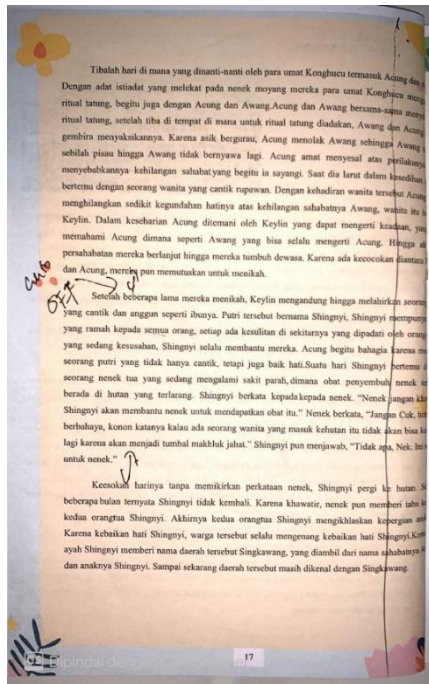 Tibalah hari di mana yang dinanti-nanti oleh para umat Konghucu termasuk Acung dan
Dengan adat istiadat yang melekat pada nenek moyang mereka para umat Konghucu
ritual tatung, begitu juga dengan Acung dan Awang.Acung dan Awang bersama-sama
ritual tatung, setelah tiba di tempat di mana untuk ritual tatung diadakan, Awang dan Acung
gembira menyaksikannya. Karena asik bergurau, Acung menolak Awang sehingga Awang
sebilah pisau hingga Awang tidak bernyawa lagi. Acung amat menyesal atas perilakunya
menyebabkannya kehilangan sahabat yang begitu ia sayangi. Saat dia larut dalam kesedihan
bertemu dengan seorang wanita yang cantik rupawan. Dengan kehadiran wanita tersebut Acung
menghilangkan sedikit kegundahan hatinya atas kehilangan sahabatnya Awang, wanita itu
Keylin. Dalam keseharian Acung ditemani oleh Keylin yang dapat mengerti keadaan, yang
memahami Acung dimana seperti Awang yang bisa selalu mengerti Acung. Hingga
persahabatan mereka berlanjut hingga mereka tumbuh dewasa. Karena ada kecocokan diantara
dan Acung, mereka pun memutuskan untuk menikah.
Setelah beberapa lama mereka menikah, Keylin mengandung hingga melahirkan seorang
yang cantik dan anggun seperti ibunya. Putri tersebut bernama Shingnyi, Shingnyi
yang ramah kepada semua orang, setiap ada kesulitan di sekitarnya yang dipadati oleh orang
yang sedang kesusahan, Shingnyi selalu membantu mereka. Acung begitu bahagia karena
seorang putri yang tidak hanya cantik, tetapi juga baik hati.Suatu hari Shingnyi bertemu
seorang nenek tua yang sedang mengalami sakit parah,dimana obat penyembuh nenek
berada di hutan yang terlarang. Shingnyi berkata kepada kepada nenek. "Nenek jangan
Shingnyi akan membantu nenek untuk mendapatkan obat itu." Nenek berkata, "Jangan Cuk,
berbahaya, konon katanya kalau ada seorang wanita yang masuk kehutan itu tidak akan bisa
lagi karena akan menjadi tumbal makhluk jahat." Shingnyi pun menjawab, "Tidak apa, Nek.
untuk nenek."
Keesokan harinya tanpa memikirkan perkataan nenek, Shingnyi pergi ke hutan.
beberapa bulan ternyata Shingnyi tidak kembali. Karena khawatir, nenek pun memberi tahu
kedua orangtua Shingnyi. Akhirnya kedua orangtua Shingnyi mengikhlaskan kepergian
Karena kebaikan hati Shingnyi, warga tersebut selalu mengenang kebaikan hati Shingnyi.
ayah Shingnyi memberi nama daerah tersebut Singkawang, yang diambil dari nama sahabatnya
dan anaknya Shingnyi. Sampai sekarang daerah tersebut masih dikenal dengan Singkawang.
17
Dipindai dengan